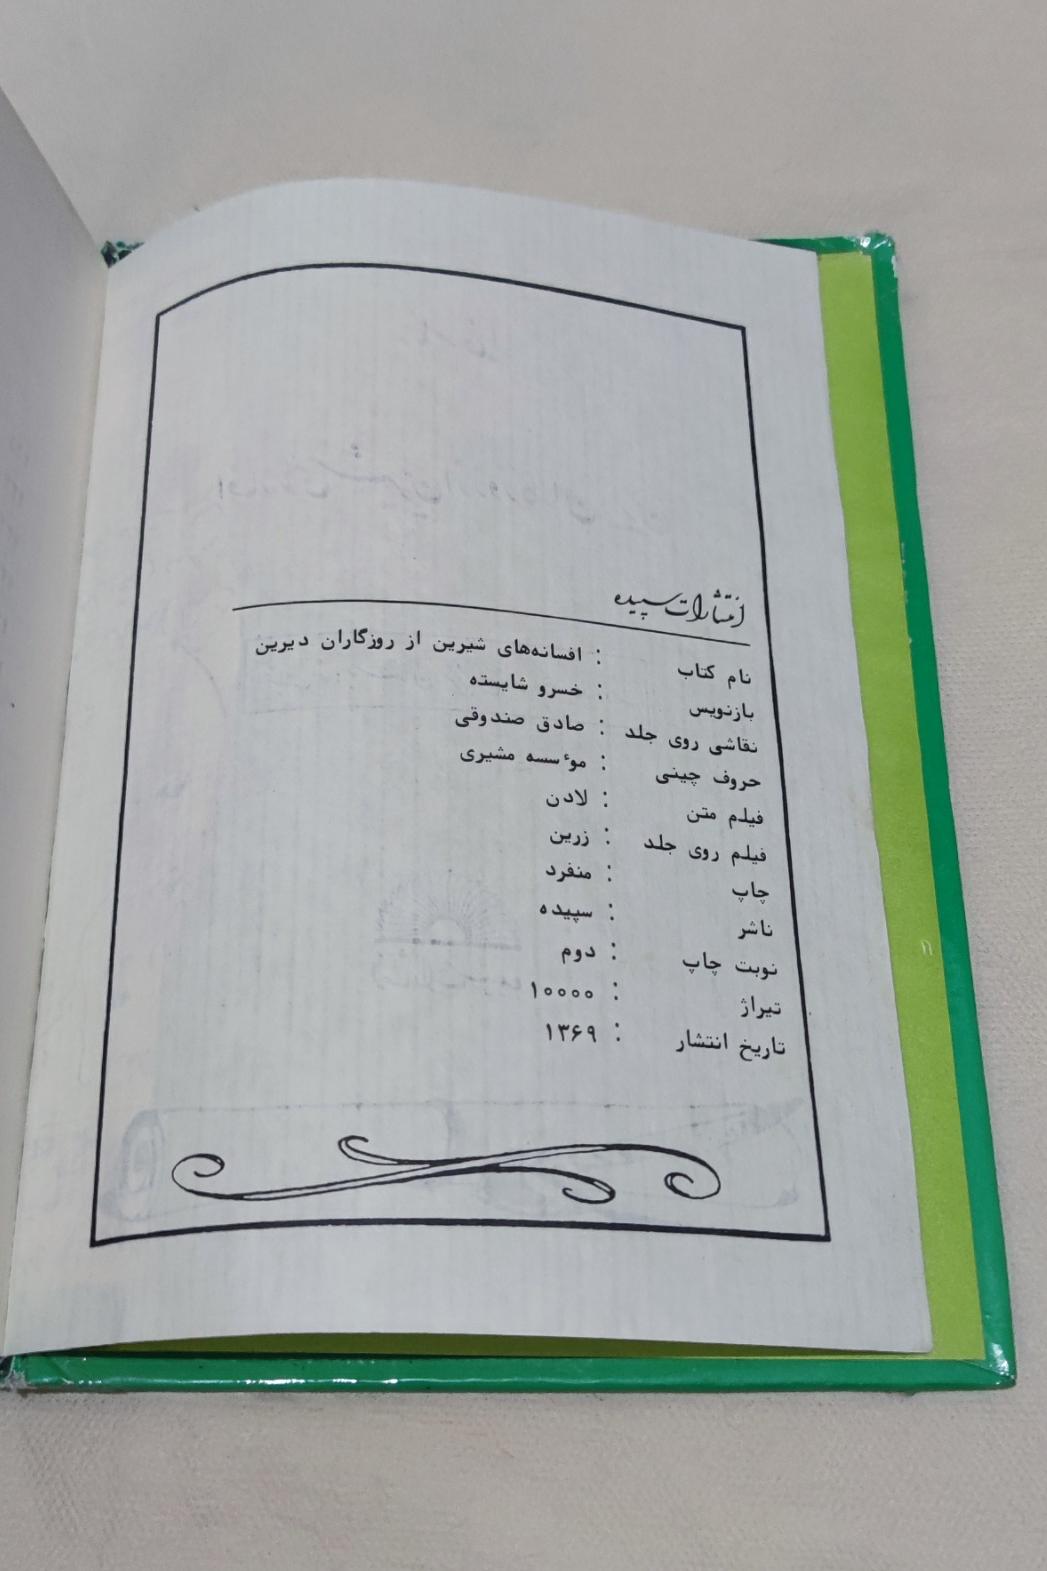 انتشارات سپیده
نام کتاب : افسانه‌های شیرین از روزگاران دیرین
بازنویس : خسرو شایسته
نقاشی روی جلد : صادق صندوقی
حروف چینی : موٴسسه مشیری
فیلم متن : لادن
فیلم روی جلد : زرین
چاپ : منفرد
ناشر : سپیده
نوبت چاپ : دوم
تیراژ : ۱۰۰۰۰
تاریخ انتشار : ۱۳۶۹